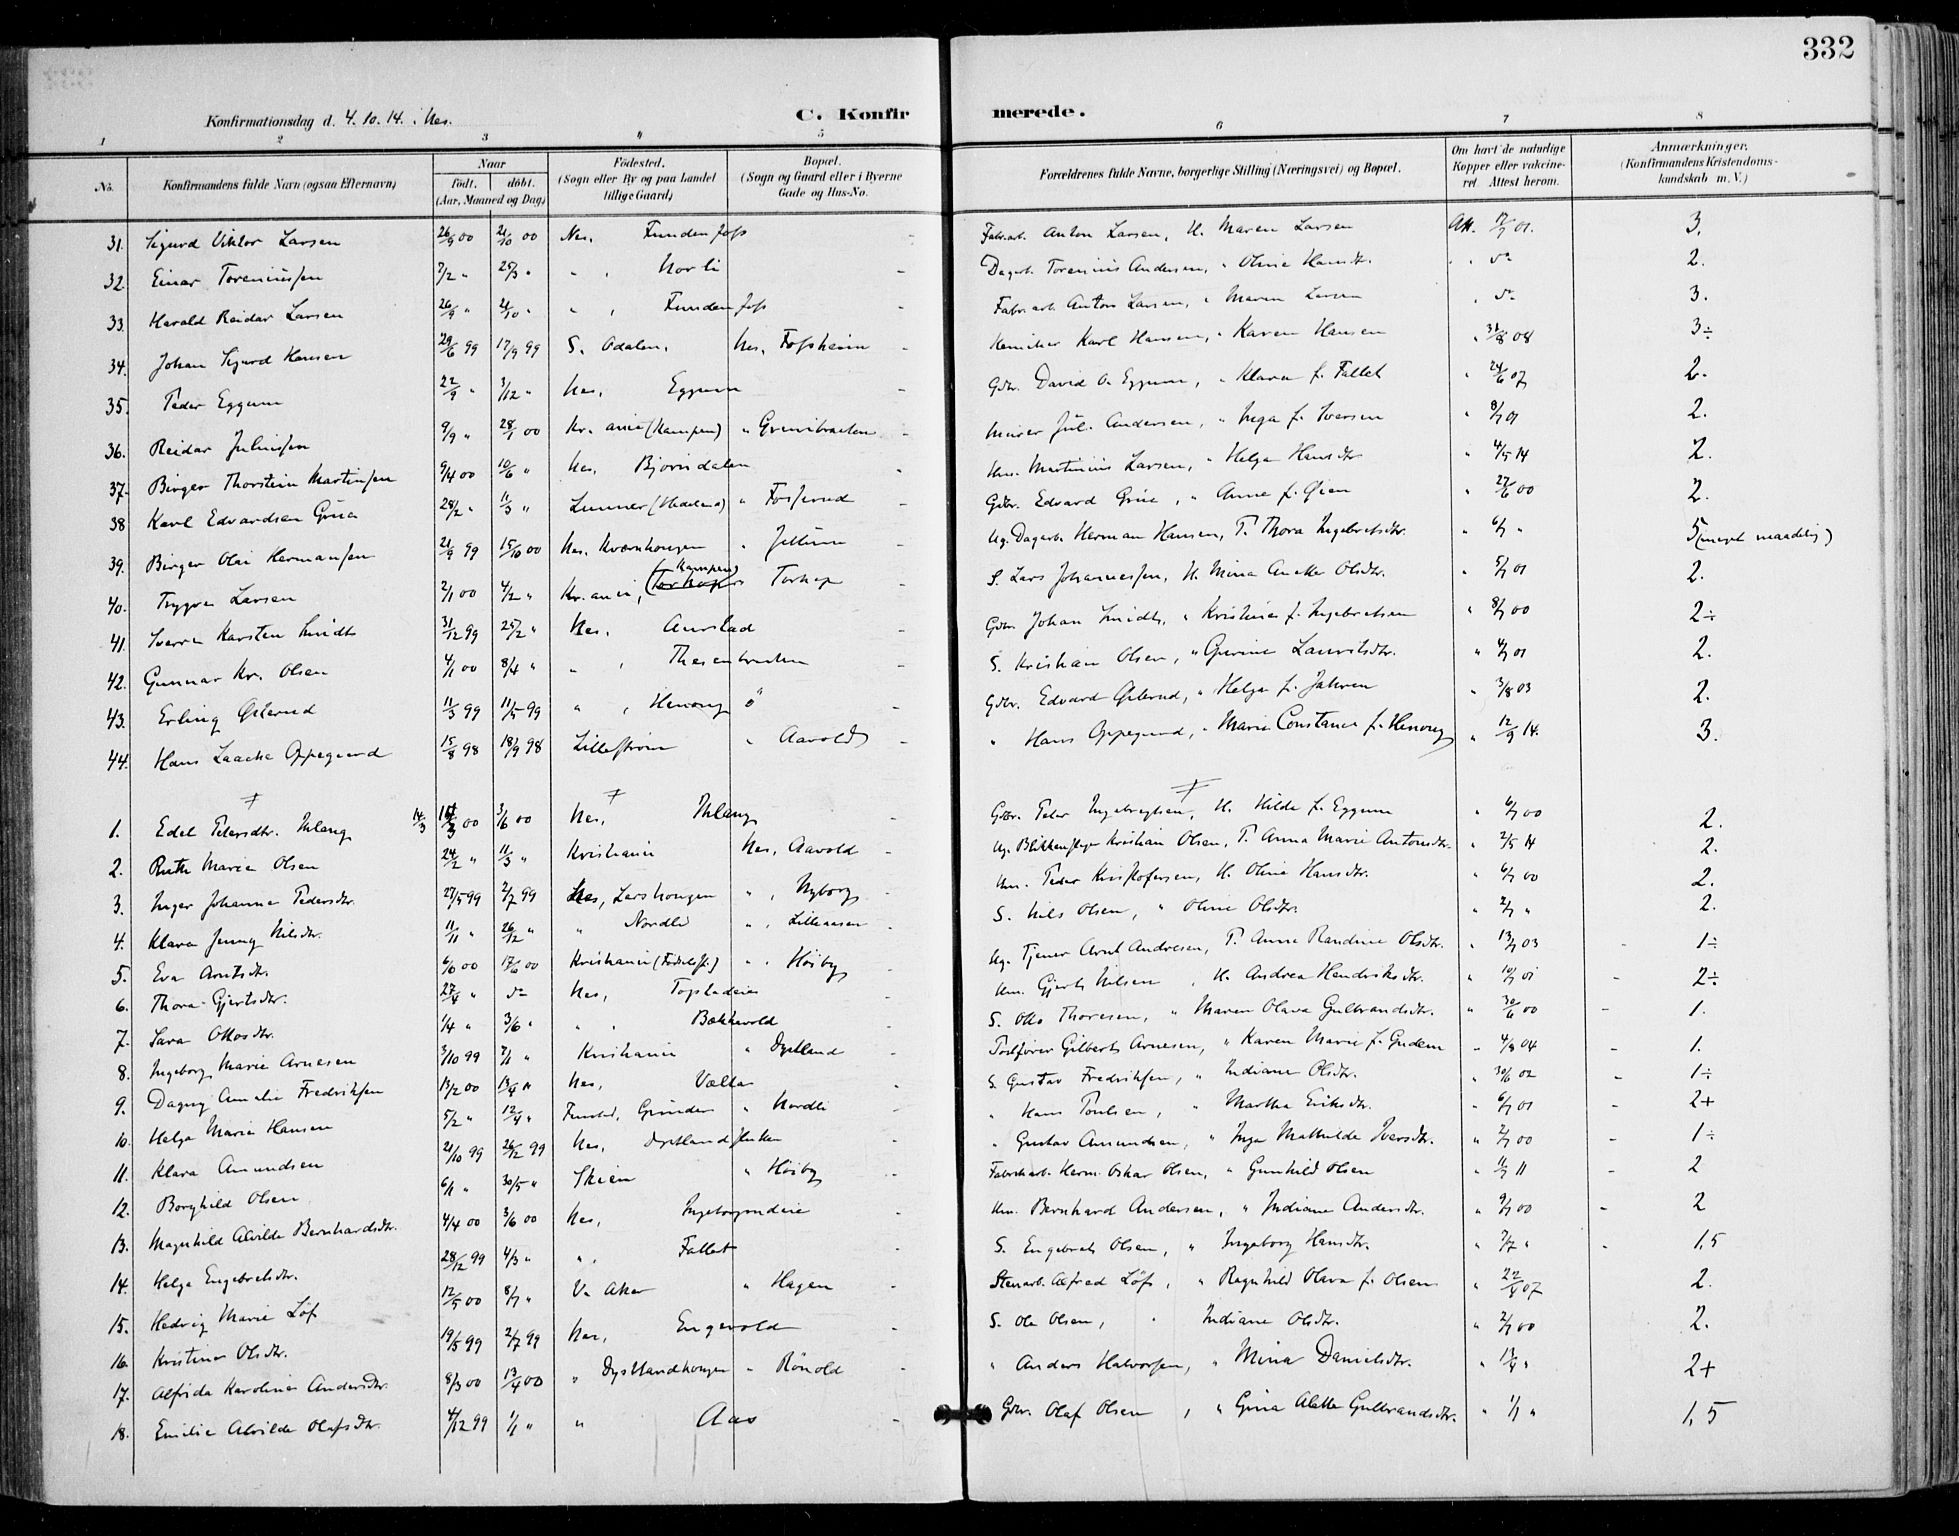 332
Konfirmationsdag d. 4.10.14. Nes. C. Konfirmerede.
1 2 3 " 5 6 7 8
No. Konfirmandens fulde Navn (ogsaa Efternavn) Naar født. døbt. (Aar, Maaned og Dag) Fødested. (Sogn eller By og paa Landet tillige Gaard) Bopæl. (Sogn og Gaard eller i Byerne Gade og Hus-No. Forældrenes fulde Navne, borgerlige Stilling (Næringsvei) og Bopæl. Om havt de naturlige Kopper eller vakcineret. Attest herom. Anmærkninger. (Konfirmandens Kristendomskundskab m. V.)
31. Sigurd Viktor Larsen 26/9 00 21/10 00 Nes, Funden foss Fabr.arb. Anton Larsen, H. Maren Larsen Att. 01. 3.
32. Einar Toreniussen 7/2 " 25/3 " " , Norli Dagarb. Torenius Andersen, " Oline Hansdtr. " do 2.
33. Harald Reidar Larsen 26/9 " 21/10 " " , Funden foss Fabr.arb. Anton Larsen, " Maren Larsen " do 3.
34. Johan Sigurd Hansen 29/6 99 17/9 99 S. Odalen, Nes, Fossheim Karl Hansen, " Karen Hansen " 31/8 08 3÷
35. Peder Eggum 22/9 " 3/12 " Nes, Eggum Gdbr. David O. Eggum, " Klara f. Fallet " 24/6 07 2.
36. Reidar Juliussen 9/9 " 28/1 00 Kr.ania (Kampen) " Murer Jul. Andersen, " Inga f. Iversen " 8/7 01 2.
37. Birger Thorstein Martinsen 9/4 00 10/6 " Nes, Bjørndalen Hm. Martinius Larsen, " Helga Hansdtr " 4/5 14 2.
38 Karl Edvardsen Grua 28/2 " 11/3 " Lunner (Hadeland) " Fosserud Gdbr. Edvard Grua, " Anne f. " 27/6 00 2.
39. Birger Olai Hermansen 21/9 99 15/10 00 Nes, Kværnhaugen " Jellum Ug. Dagarb. Herman Hansen, P. Thora Ingebretsdtr. " 6/7 " 5 (meget maadelig)
40. Trygve Larsen 2/1 00 4/2 " Kr.ania, (Kampen) Torhop S. Lars Johannessen, H. Mina Anette Olsdtr. " 5/7 01 2.
41. Sverre Karsten Smidt 31/12 99 25/2 " Nes, Aurstad Gdbr. Johan Smidt, " Kristine f. Ingebretsen " 8/7 00 2÷
42. Gunnar Kr. Olsen 4/1 00 8/4 " " , Thesenbraaten S. Kristian Olsen, " Gurine Lauritsdtr. " 4/7 01 2.
43. Erling Østerud 11/3 99 11/5 99 " , Henong ö Gdbr. Edvard Østerud, " Helga f. Jahren " 3/8 03 2.
44. Hans Laache Oppegaard 15/8 98 18/9 98 Lillestrøm " Aarold " Hans Oppegaard, " Marie Constance f. Henong " 12/9 14. 3.
1. Edel Petersdtr. Ihlang 14/3 00 3/6 00 Nes, Ihlang Gdbr. Peter Ingebregtsen, H. Hilda f. Eggum " 6/7 00 2.
2. Ruth Marie Olsen 24/2 " 11/3 " Kristiania Nes, Aavold Ug. Blikkenslager Kristian Olsen, P. Anna Marie Antonsdtr. " 2/5 14 2.
3. Inger Johanne Pedersdtr. 27/5 99 2/7 99 Nes, Larshaugen " , Nyborg Hm. Peder Kristofersen, H. Oline Hansdtr. " 6/7 00 2.
4. Klara Jenny Nilsdtr. 11/11 " 26/12 " " Nordli " , Lilleaasen S. Nils Olsen, " Oline Olsdtr. " 2/7 " 2.
5. Eva Arntsdtr. 17/6 00 Kristiania (Fødselsst.) " , Høiby Ug. Tjener Arnt Andresen, P. Anna Randine Olsdtr. " 13/7 03 1÷
6. Thora Gjertsdtr. 27/4 " do Nes, Hm. Gjert Nilsen, H. Andrea Hendriksdtr. " 10/7 01 2÷
7. Sara Ottosdtr. 1/4 " 3/6 " " , Bækkevold S. Otto Thoresen, " Maren Olava Gulbrandsdtr. " 30/6 00 1.
8. Ingeborg Marie Arnesen 3/10 99 7/1 " Kristiania " Dystland Postfører Gilbert Arnesen, " Karen Marie f. Gudem " 4/8 04 1.
9. Dagny Amalie Fredriksen 13/2 00 13/4 " Nes, Vælta S. Gustav Fredriksen, " Indiane Olsdtr. " 30/6 02 1÷
10. Helga Marie Hansen 5/2 " 12/4 " Funstad, Grinder " Nordli " Hans Poulsen, " Martha Eriksdtr. " 6/7 01 2+
11. Klara Amundsen 21/10 99 26/12 99 Nes, Gustav Amundsen, " Inga Mathilde Iversdtr. " 2/7 00 1÷
12. Borghild Olsen 6/1 " 30/5 " Skien " Høiby Fabrikarb. Herm. Oskar Olsen, " Gunhild Olsen " 11/7 11 2
13. Magnhild Alvilde Bernhardsdtr. 4/4 00 3/6 00 Nes, Ingeborgmdeie Hm. Bernhard Andersen, " Indiane Andersdtr. " 9/7 00 2
14. Helga Engebretsdtr. 28/12 99 4/3 " " , Fallet S. Engebret Olsen, " Ingeborg Hansdtr. " 7/7 " 1,5
15. Hedvig Marie Löf 12/5 00 8/7 " V. Aker " Hagen Stenarb. Alfred Löf, " Ragnhild Olava f. Olsen " 22/4 07 2.
16. Kristine Olsdtr. 19/5 99 2/7 99 Nes, Engevold S. Ole Olsen, " Indiane Olsdtr. " 2/7 00 2.
17. Alfrida Karoline Andersdtr. 8/3 00 13/4 00 " Dystlandhaugen " Rönold " Anders Halvorsen, " Mina Danielsdtr. " 13/4 " 2+
18. Emilie Alvilde Olafsdtr. 4/12 99 1/1 " " Aas Gdbr. Olaf Olsen, " Gina Alette Gulbrandsdtr. " 1/7 " 1,5